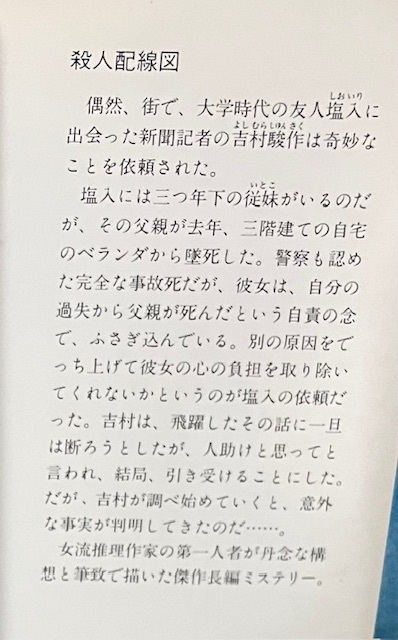 殺人配線図
偶然、街で、大学時代の友人塩入に
出会った新聞記者の吉村駿作は奇妙な
ことを依頼された。
塩入には三つ年下の従妹がいるのだ
が、その父親が去年、三階建ての自宅
のベランダから墜死した。警察も認め
た完全な事故死だが、彼女は、自分の
過失から父親が死んだという自責の念
で、ふさぎ込んでいる。別の原因をで
っち上げて彼女の心の負担を取り除い
てくれないかというのが塩入の依頼だ
った。吉村は、飛躍したその話に一旦
は断ろうとしたが、人助けと思ってと
言われ、結局、引き受けることにした。
だが、吉村が調べ始めていくと、意外
な事実が判明してきたのだ……。
女流推理作家の第一人者が丹念な構
想と筆致で描いた傑作長編ミステリー。